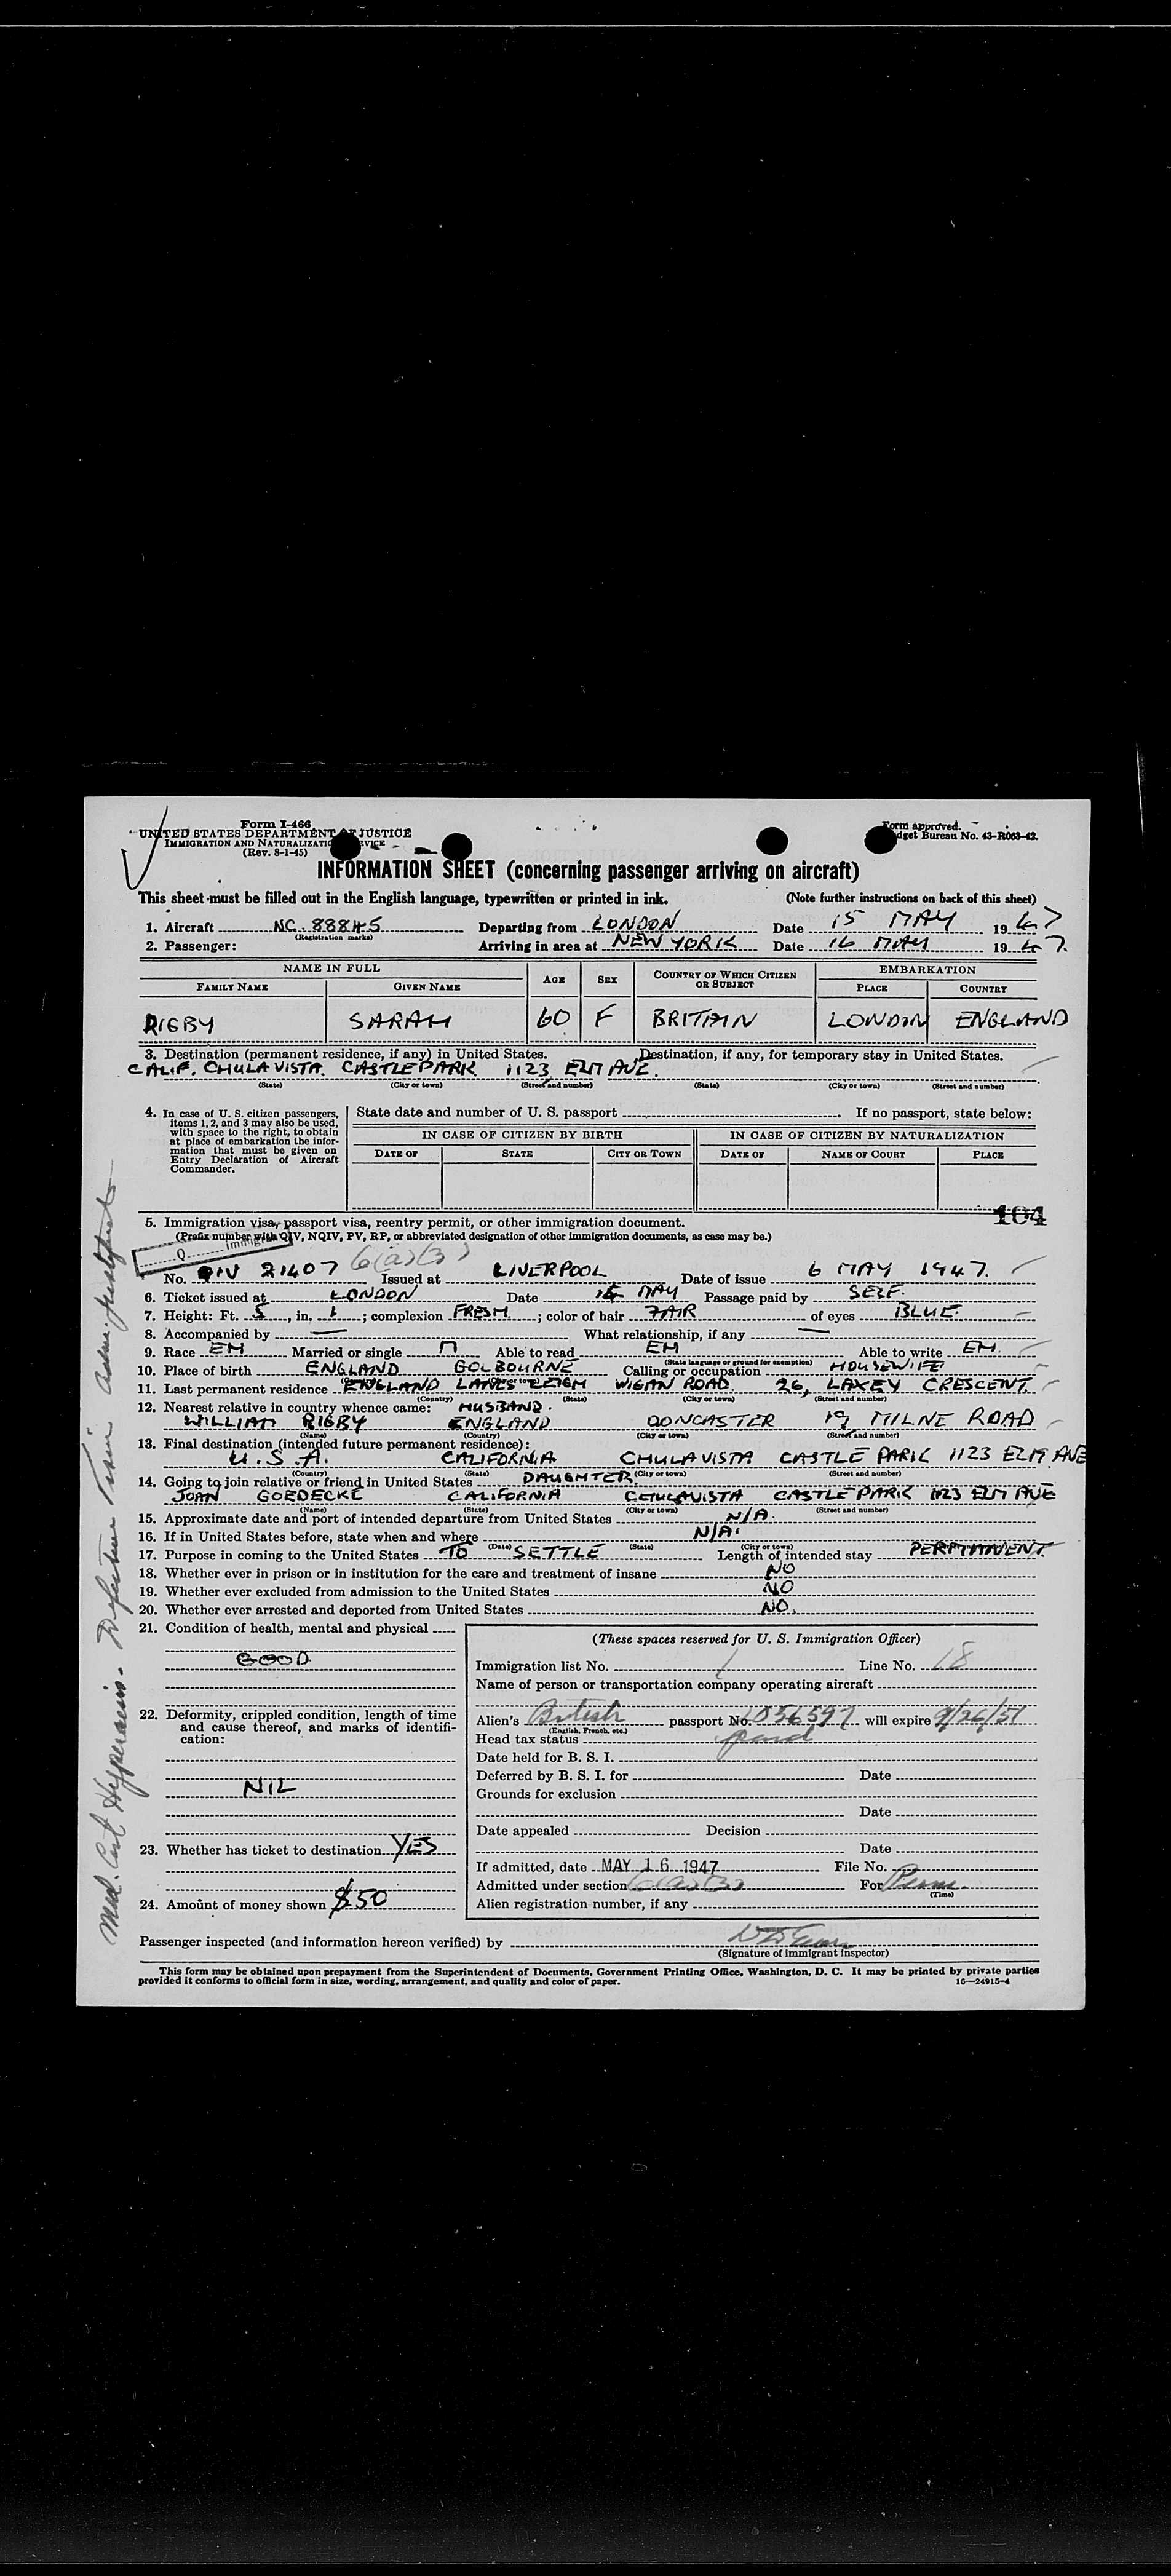 Form I-466
UNITED STATES DEPARTMENT OF JUSTICE
IMMIGRATION AND NATURALIZATION SERVICE
(Rev. 8-1-45)
Form approved.
Budget Bureau No. 43-R063-42.
INFORMATION SHEET (concerning passenger arriving on aircraft)
This sheet must be filled out in the English language, typewritten or printed in ink. (Note further instructions on back of this sheet)
1. Aircraft NC. 88845 Departing from LONDON Date 15 MAY 1947
(Registration marks)
2. Passenger: Arriving in area at NEW YORK Date 16 MAY 1947.
NAME IN FULL AGE SEX COUNTRY OF WHICH CITIZEN OR SUBJECT EMBARKATION
FAMILY NAME GIVEN NAME PLACE COUNTRY
RIGBY SARAH 60 F BRITAIN LONDON ENGLAND
3. Destination (permanent residence, if any) in United States. Destination, if any, for temporary stay in United States.
CALIF. CHULA VISTA. CASTLE PARK 1123 ELM AVE.
(State) (City or town) (Street and number) (State) (City or town) (Street and number)
4. In case of U. S. citizen passengers, items 1, 2, and 3 may also be used, with space to the right, to obtain at place of embarkation the information that must be given on Entry Declaration of Aircraft Commander.
State date and number of U. S. passport If no passport, state below:
IN CASE OF CITIZEN BY BIRTH IN CASE OF CITIZEN BY NATURALIZATION
DATE OF STATE CITY OR TOWN DATE OF NAME OF COURT PLACE
104
5. Immigration visa, passport visa, reentry permit, or other immigration document.
(Prefix number with QIV, NQIV, PV, RP, or abbreviated designation of other immigration documents, as case may be.)
Q immigrant
6(a)(3)
No. QIV 21407 Issued at LIVERPOOL Date of issue 6 MAY 1947.
6. Ticket issued at LONDON Date MAY Passage paid by SELF.
7. Height: Ft. 5, in. 1; complexion FRESH; color of hair FAIR of eyes BLUE
8. Accompanied by — What relationship, if any —
9. Race EM Married or single M Able to read EM Able to write EM.
(State language or ground for exemption)
10. Place of birth ENGLAND GOLBOURNE Calling or occupation HOUSEWIFE
11. Last permanent residence ENGLAND LANCS LEIGH WIGAN ROAD. 26, LAXEY CRESCENT.
(Country) (State) (City or town) (Street and number)
12. Nearest relative in country whence came: HUSBAND.
WILLIAM RIGBY ENGLAND DONCASTER 19 MILNE ROAD
(Name) (Country) (City or town) (Street and number)
13. Final destination (intended future permanent residence):
U.S.A. CALIFORNIA CHULA VISTA CASTLE PARK 1123 ELM AVE
(Country) (State) (City or town) (Street and number)
14. Going to join relative or friend in United States DAUGHTER.
JOAN GOEDECKE CALIFORNIA CHULAVISTA CASTLE PARK 1123 ELM AVE
(Name) (State) (City or town) (Street and number)
15. Approximate date and port of intended departure from United States N/A.
16. If in United States before, state when and where N/A.
(Date) (State) (City or town)
17. Purpose in coming to the United States TO SETTLE Length of intended stay PERMANENT.
18. Whether ever in prison or in institution for the care and treatment of insane NO
19. Whether ever excluded from admission to the United States NO
20. Whether ever arrested and deported from United States NO.
21. Condition of health, mental and physical
GOOD
22. Deformity, crippled condition, length of time and cause thereof, and marks of identification:
NIL
23. Whether has ticket to destination YES
24. Amount of money shown $50
(These spaces reserved for U. S. Immigration Officer)
Immigration list No. 1 Line No. 18
Name of person or transportation company operating aircraft
Alien's British passport No. 1056597 will expire 9/26/51
(English, French, etc.)
Head tax status
Date held for B. S. I.
Deferred by B. S. I. for Date
Grounds for exclusion
Date
Date appealed Decision
Date
If admitted, date MAY 16 1947 File No.
Admitted under section 6(a)(3) For Perm.
(Time)
Alien registration number, if any
Passenger inspected (and information hereon verified) by
(Signature of immigrant inspector)
This form may be obtained upon prepayment from the Superintendent of Documents, Government Printing Office, Washington, D. C. It may be printed by private parties
provided it conforms to official form in size, wording, arrangement, and quality and color of paper. 16—24915-4
Med. Cert Defective Vision